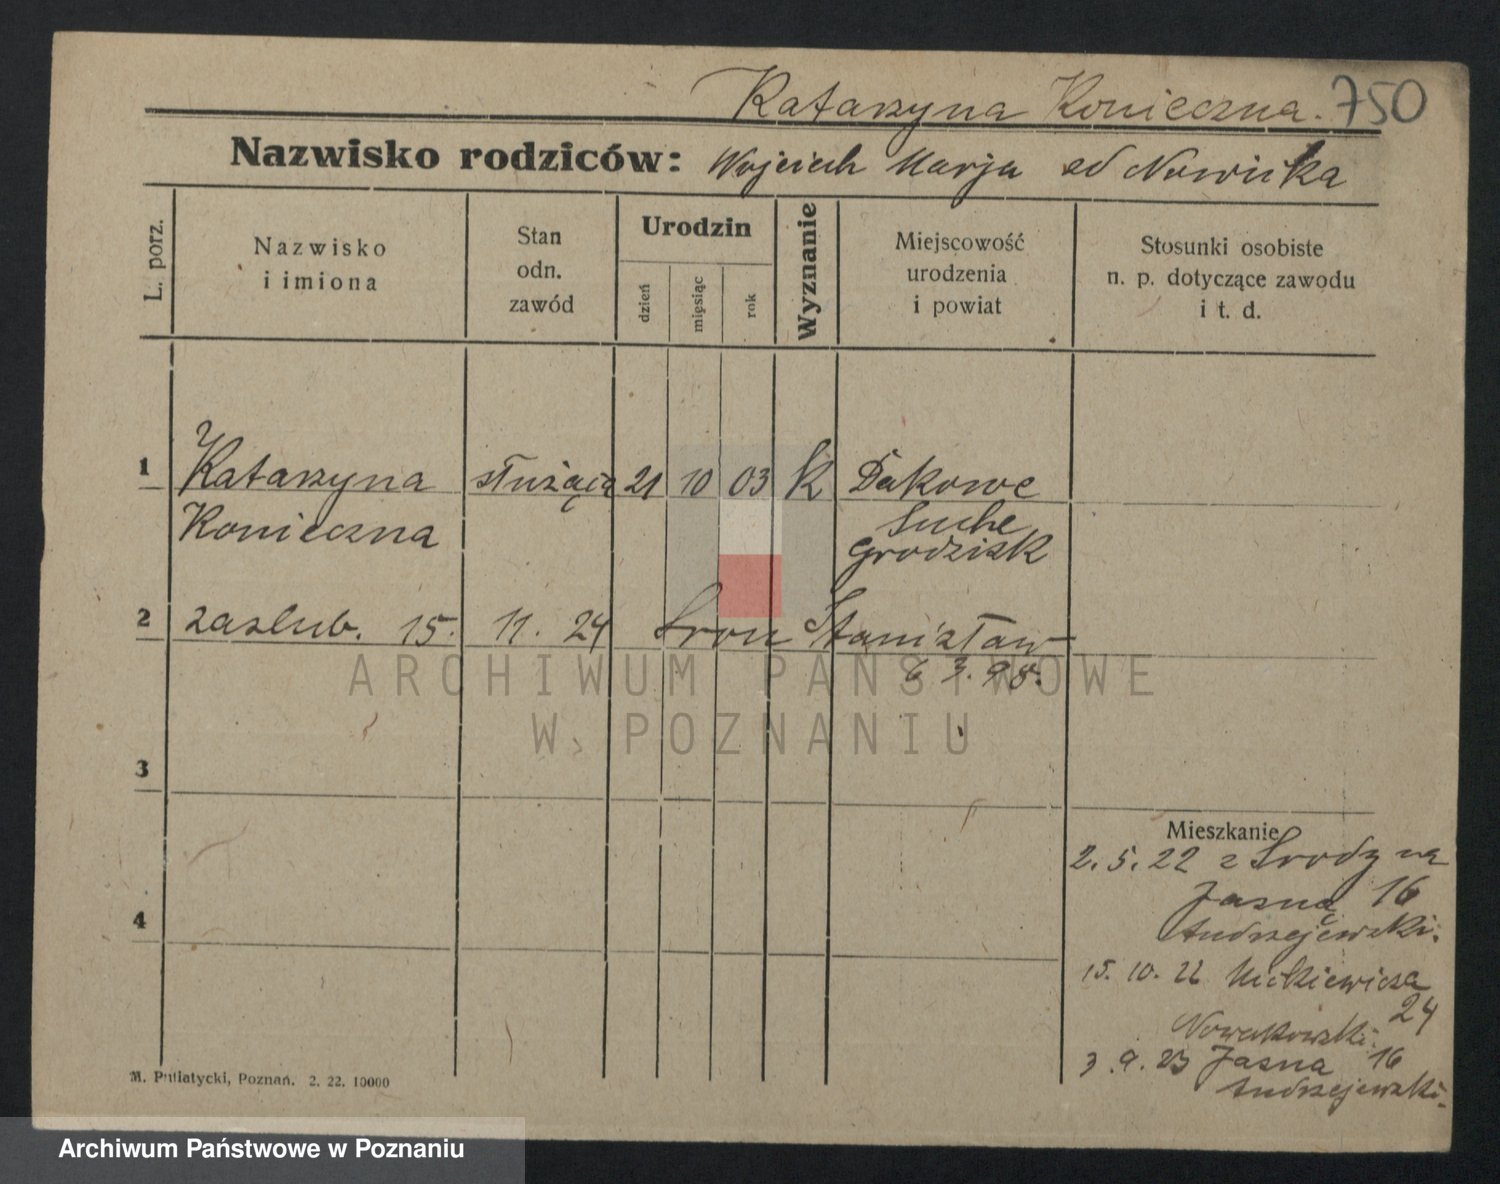 Katarzyna Konieczna. 750
Nazwisko rodziców: Wojciech Marja od Nowicka
L. porz.
Nazwisko
i imiona
Stan
odn.
zawód
Urodzin
dzień
miesiąc
rok
Wyznanie
Miejscowość
urodzenia
i powiat
Stosunki osobiste
n. p. dotyczące zawodu
i t. d.
1 Katarzyna służąca 21 10 03 k Dakowe
Konieczna Suche
Grodzisk
2 zaslub. 15. 11. 24 Sron Stanisław
6 3. 98.
ARCHIWUM PAŃSTWOWE
W POZNANIU
3
Mieszkanie
2. 5. 22 z Srody na
Jasną 16
Andrzejewski.
4
15. 10. 22 Mickiewicza
24
Nowakowski.
3. 9. 23 Jasna 16
Andrzejewski.
M. Putiatycki, Poznań. 2. 22. 10000
Archiwum Państwowe w Poznaniu